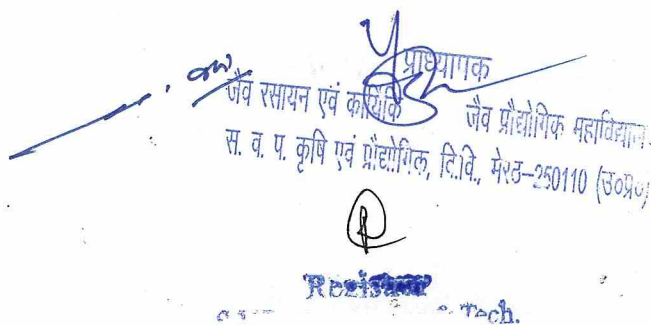 प्राध्यापक
जैव रसायन एवं कायिकि जैव प्रौद्योगिक महाविद्यालय
स. व. प. कृषि एवं प्रौद्योगिक, वि.वि., मेरठ-250110 (उ०प्र०)
Registrar
Tech.